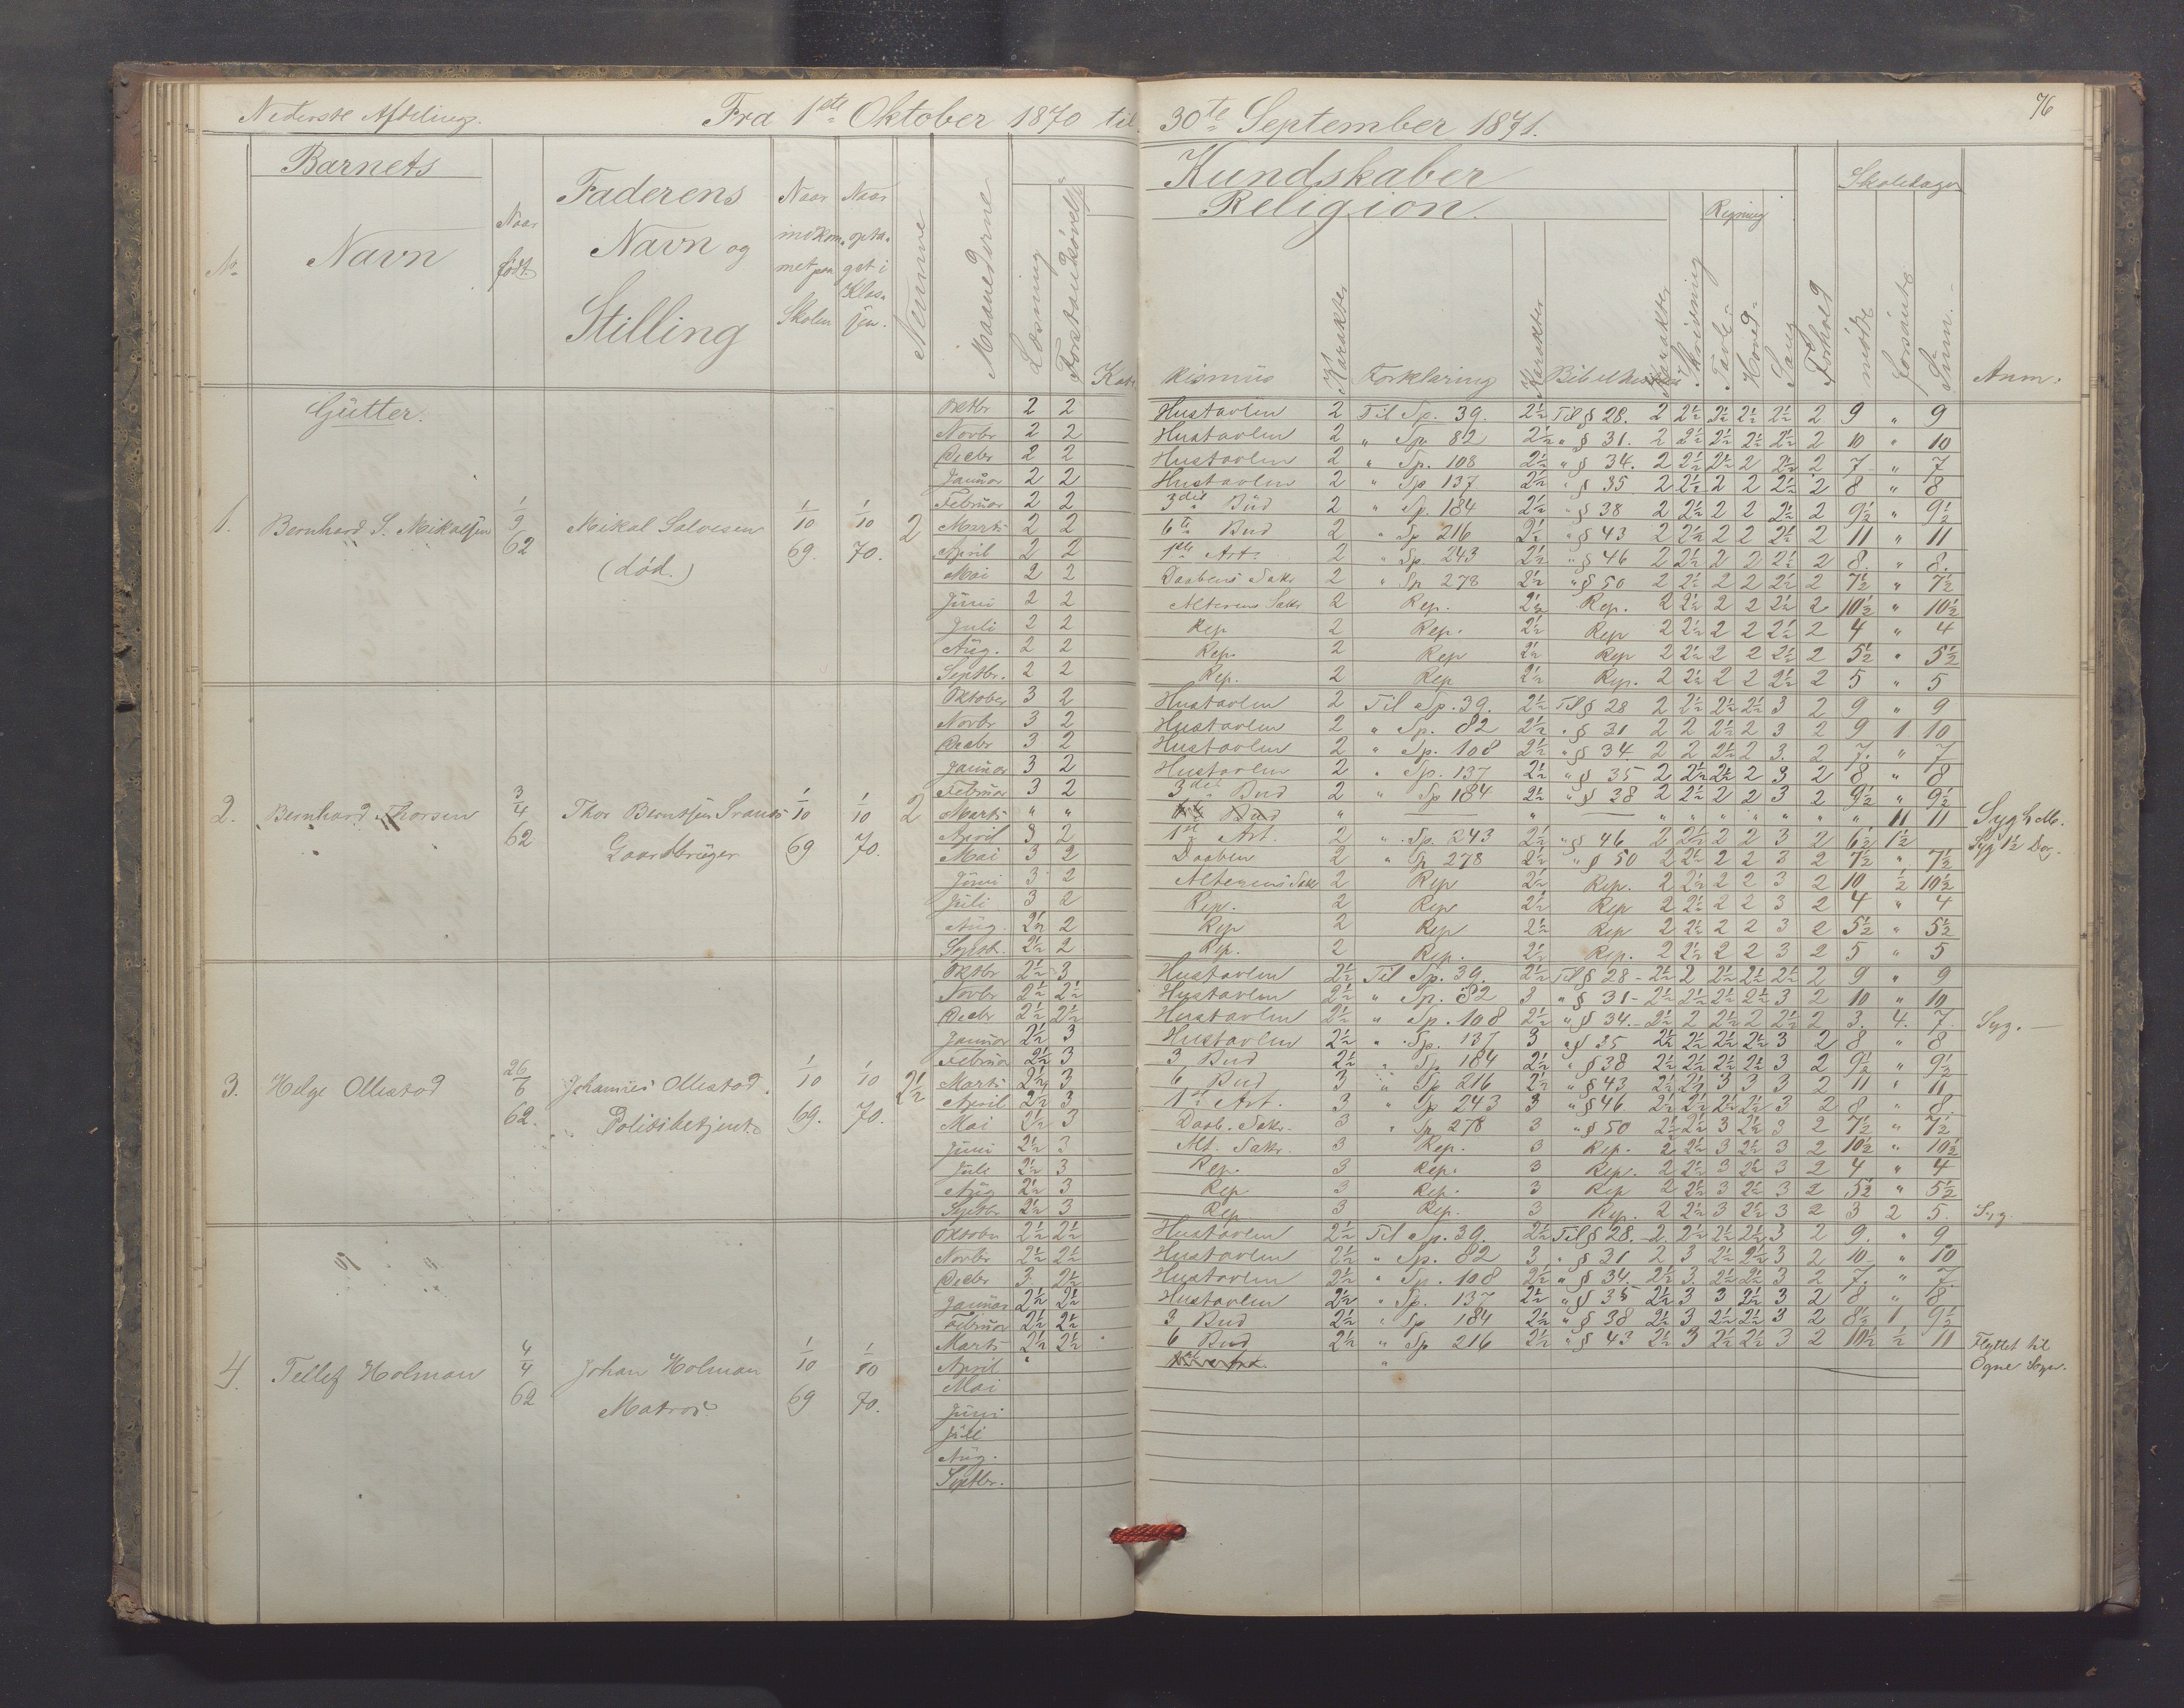 Nederste Afdeling. Fra 1ste Oktober 1870 til 30te September 1871. 76
Barnets
No Navn Naar født.
Faderens Navn og Stilling
Naar indkommet paa Skolen
Naar optaget i Klassen.
Nemme
Maanederne
Læsning
Forstandsøvelse
Kundskaber
Religion.
Katekismus Karakter Forklaring Karakter Bibelhistorie Karakter
Skrivning
Regning
Tavle- Hoved-
Sang
Forhold
Skoledage
mødte forsømte Sum.
Anm.
Gutter.
1. Bernhard S. Mikalsen 1/9 62 Mikal Salvesen (død.) 1/10 69. 1/10 70. 2
Oktbr 2 2 Hustavlen 2 Til Sp. 39. 2½ Til § 28. 2 2½ 2½ 2½ 2½ 2 9 " 9
Novbr 2 2 Hustavlen 2 " Sp. 82 2½ " § 31. 2 2½ 2½ 2½ 2½ 2 10 " 10
Decbr 2 2 Hustavlen 2 " Sp. 108 2½ " § 34. 2 2½ 2½ 2 2½ 2 7 " 7
Januar 2 2 Hustavlen 2 " Sp 137 2½ " § 35 2 2½ 2 2 2½ 2 8 " 8
Februar 2 2 3die Bud 2 " Sp. 184 2½ " § 38 2 2½ 2 2 2½ 2 9½ " 9½
Marts 2 2 6te Bud 2 " Sp 216 2½ " § 43 2 2½ 2 2 2½ 2 11 " 11
April 2 2 1ste Art. 2 " Sp. 243 2½ " § 46 2 2½ 2 2 2½ 2 8. " 8.
Mai 2 2 Daabens Sakr 2 " Sp 278 2½ " § 50 2 2½ 2 2 2½ 2 7½ " 7½
Juni 2 2 Alterens Sakr 2 Rep. 2½ Rep. 2 2½ 2 2 2½ 2 10½ " 10½
Juli 2 2 Rep 2 Rep. 2½ Rep 2 2½ 2 2 2½ 2 4 " 4
Aug. 2 2 Rep. 2 Rep 2½ Rep 2 2½ 2 2 2½ 2 5½ " 5½
Septbr. 2 2 Rep. 2 Rep 2½ Rep. 2 2½ 2 2 2½ 2 5 " 5
2. Bernhard Thorsen 3/4 62 Thor Berntsen Gaardbruger 1/10 69 1/10 70. 2
Oktober 3 2 Hustavlen 2 Til Sp. 39. 2½ Til § 28 2 2½ 2½ 2½ 3 2 9 " 9
Novbr 3 2 Hustavlen 2 " Sp. 82 2½ " § 31 2 2 2½ 2 3 2 9 1 10
Decbr 3 2 Hustavlen 2 " Sp. 108 2½ " § 34 2 2 2½ 2 3. 2 7. " 7
Januar 3 2 Hustavlen 2 " Sp. 137 2½ " § 35 2 2½ 2½ 2 3 2 8 " 8
Februar 3 2 3die Bud 2 " Sp 184 2½ " § 38 2 2½ 2 2 3 2 9½ " 9½
Marts " " Bud " " " " " " " " " 11 11 Syg
April 3 2 1ste Art. 2 " Sp. 243 2½ " § 46 2 2½ 2 2 3 2 6½ 1½ Syg 1½ Dag.
Mai 3 2 Daaben 2 " Sp 278 2½ " § 50 2 2½ 2 2 3 2 7½ " 7½
Juni 3 2 Alterens Sakr 2 Rep 2½ Rep. 2 2½ 2 2 3 2 10 ½ 10½
Juli 3 2 Rep. 2 Rep 2½ Rep 2 2½ 2 2 3 2 4 " 4
Aug. 2½ 2 Rep 2 Rep 2½ Rep 2 2½ 2 2 3 2 5½ " 5½
Septbr. 2½ 2 Rep. 2 Rep. 2½ Rep. 2 2½ 2 2 3 2 5 " 5
3. Helge Ollestad 26/6 62. Johannes Ollestad. Politibetjent 1/10 69. 1/10 70. 2½
Oktbr 2½ 3 Hustavlen 2½ Til Sp. 39. 2½ Til § 28 - 2½ 2 2½ 2½ 2½ 2 9 " 9
Novbr 2½ 2½ Hustavlen 2½ " Sp. 82 3 " § 31 - 2½ 2½ 2½ 2½ 3 2 10 " 10
Decbr 2½ 2½ Hustavlen 2½ " Sp. 108 2½ " § 34. - 2½ 2 2½ 2 2½ 2 3. 4. 7 Syg. —
Januar 2½ 3 Hustavlen 2½ " Sp. 137 3 " § 35 2½ 2½ 2½ 2½ 3 2 8 " 8
Februar 2½ 3 3 Bud 2½ " Sp 184 2½ " § 38 2½ 2½ 2½ 2½ 3 2 9½ " 9½
Marts 2½ 3 6 Bud 3 " Sp 216 2½ " § 43 2½ 2½ 3 3 3 2 11 " 11
April 2½ 3 1ste Art. 3 " Sp 243 3 " § 46 2½ 2½ 2½ 2½ 3 2 8 " 8
Mai 2½ 3 Daab. Sakr. 3 " Sp 278 3 " § 50 2½ 2½ 3 2½ 3 2 7½ " 7½
Juni 2½ 3 Alt. Sakr. 3 Rep. 3 Rep. 2 2½ 3 2½ 3 2 10½ " 10½
Juli 2½ 3 Rep. 3 Rep. 3 Rep. 2 2½ 3 2½ 3 2 4 " 4
Aug 2½ 3 Rep 3 Rep. 3 Rep 2 2½ 3 2½ 3 2 5½ " 5½
Septbr 2½ 3 Rep. 3 Rep. 3 Rep. 2 2½ 3 2½ 3 2 3 2 5. Syg.
4. Tellef Holman 4/4 62 Johan Holman Matros 1/10 69 1/10 70.
Oktober 2½ 2½ Hustavlen 2½ Til Sp. 39. 2½ Til § 28. - 2 2½ 2½ 2½ 3 2 9. " 9
Novbr 2½ 2½ Hustavlen 2½ " Sp. 82 3 " § 31 2 3 2½ 2½ 3 2 10 " 10
Decbr 3 2½ Hustavlen 2½ " Sp. 108 2½ " § 34. 2½ 3. 2½ 2½ 3 2 7. " 7
Januar 2½ 2½ Hustavlen 2½ " Sp. 137 2½ " § 35 2½ 3 3 2½ 3 2 8 " 8
Februar 2½ 2½ 3 Bud 2½ " Sp 184 2½ " § 38 2½ 3 2½ 2½ 3 2 8½ 1 9½
Marts 2½ 2½ 6 Bud 2½ " Sp 216 2½ " § 43 2½ 3 2½ 2½ 3 2 10½ ½ 11 Flyttet til
April " " Ogne Sogn.
Mai
Juni
Juli
Aug.
Septbr.